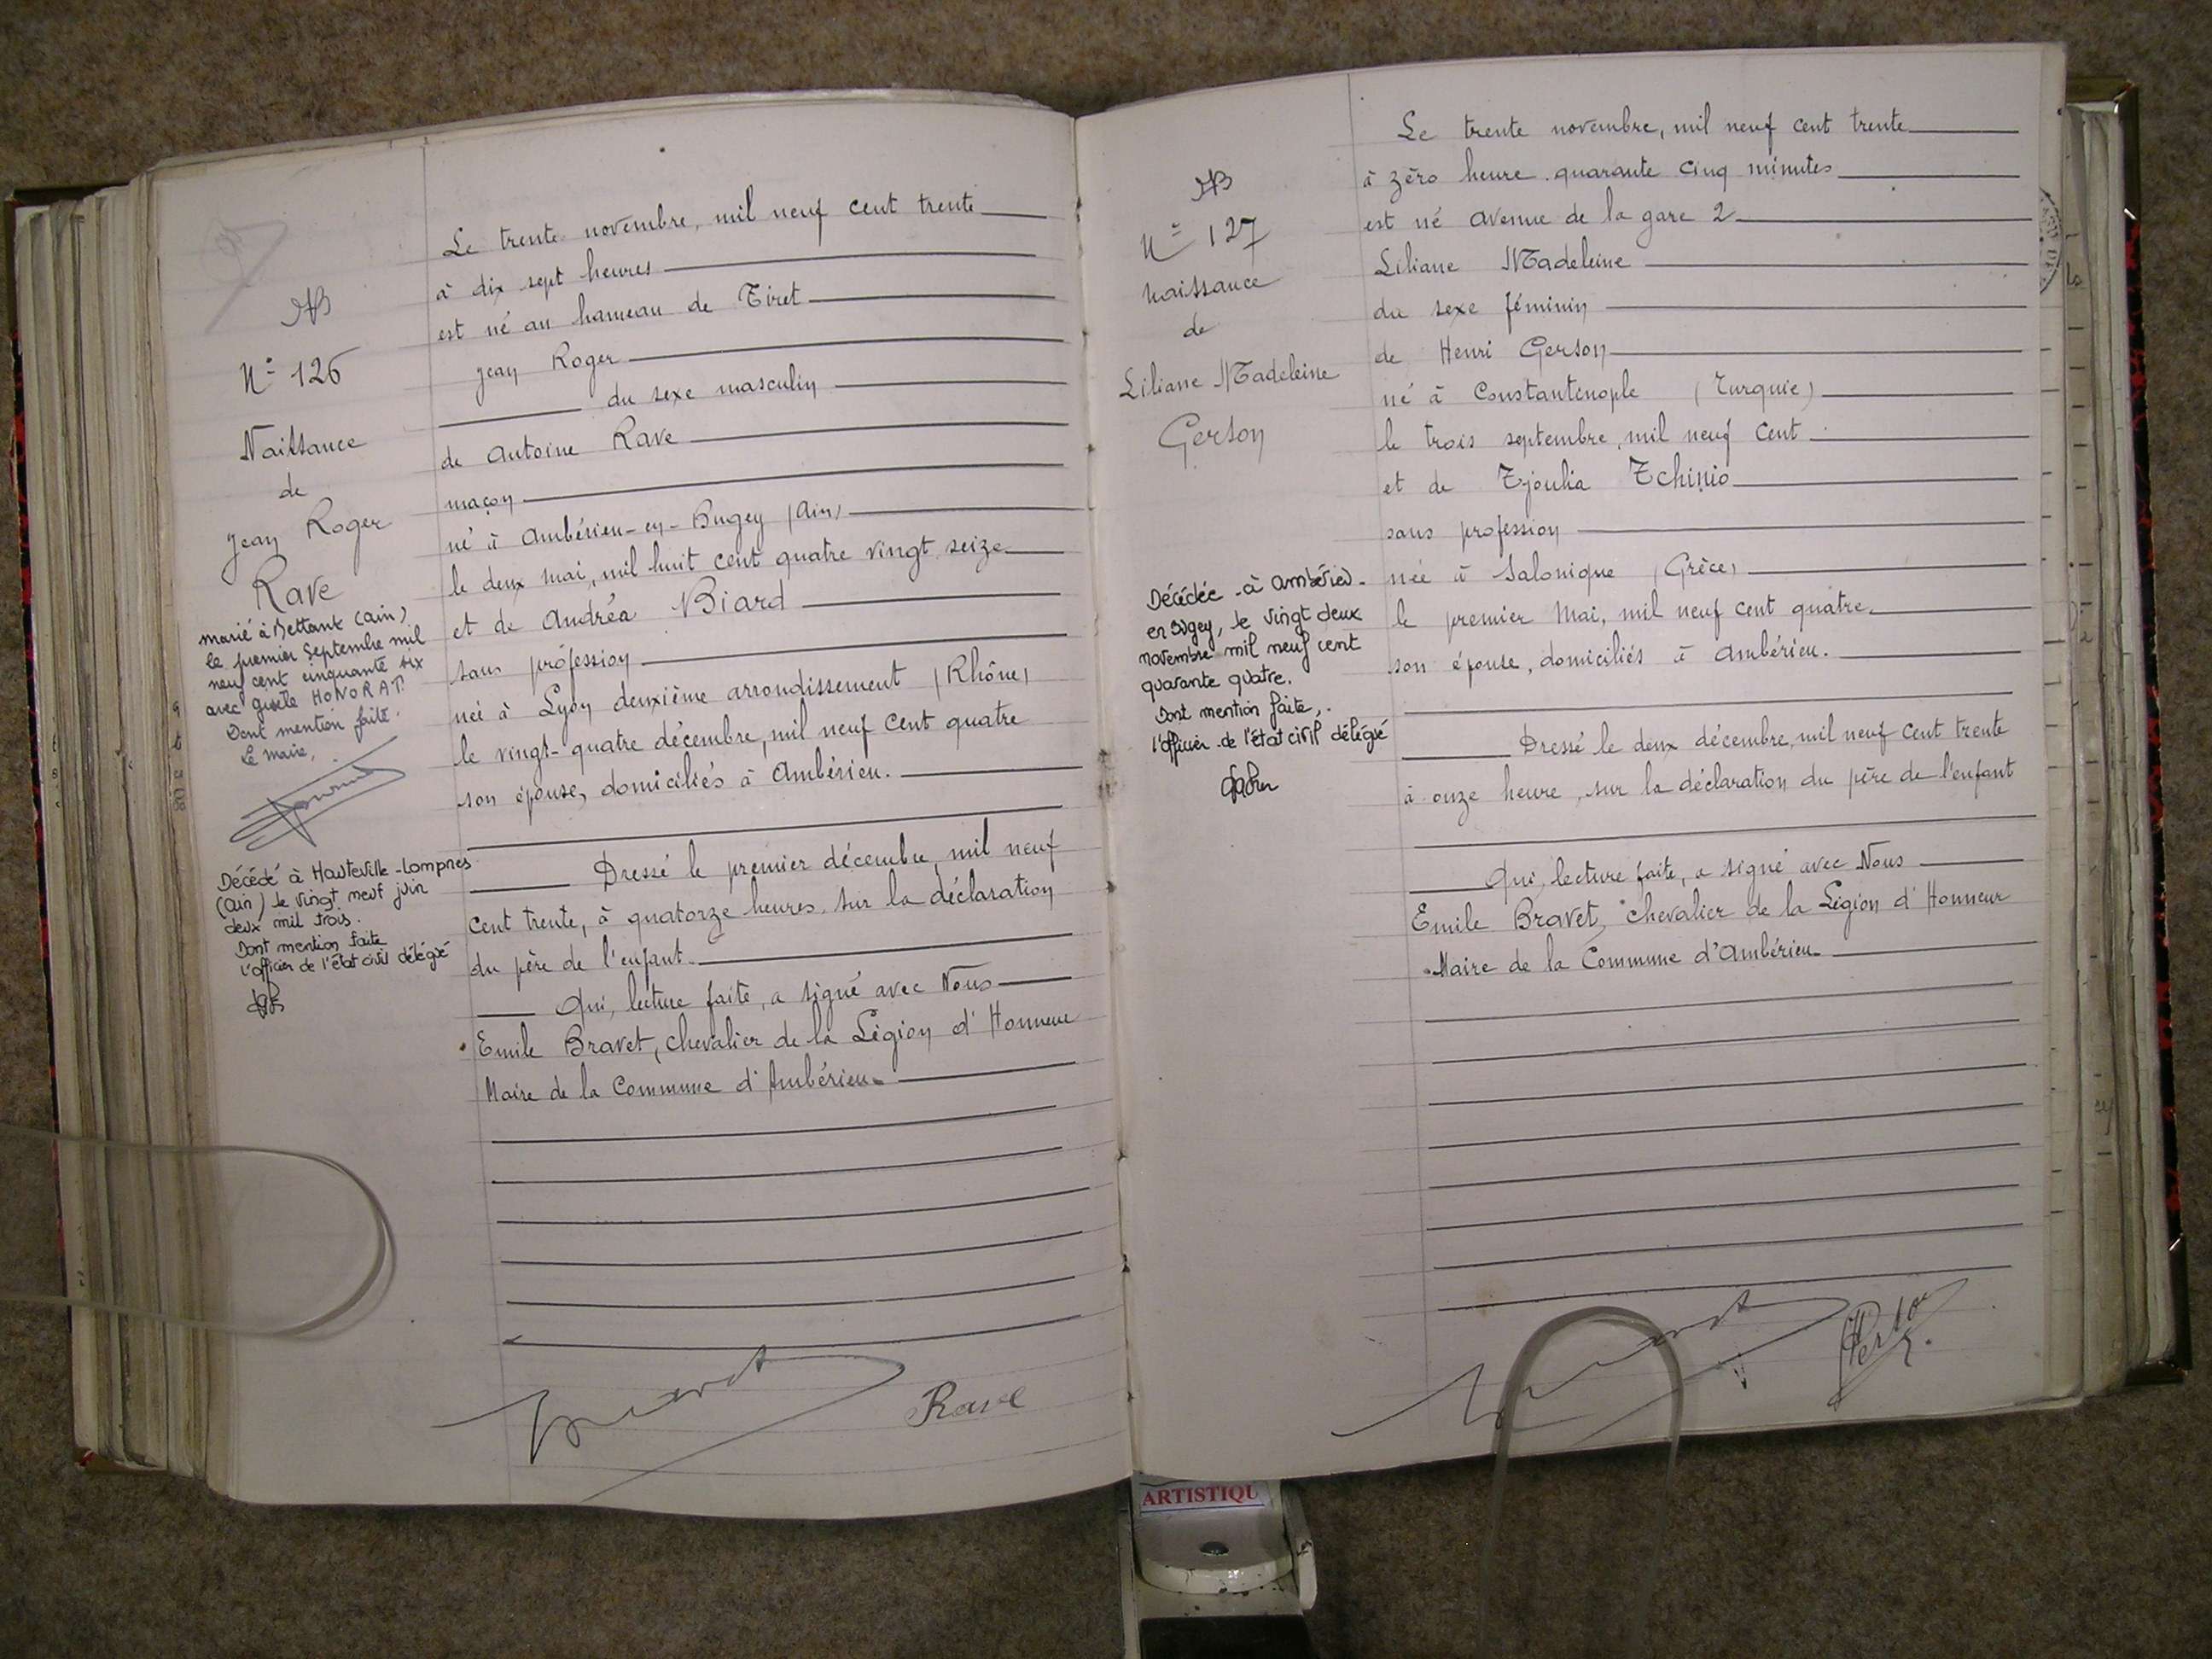 N° 126
Naissance
de
Jean Roger
Rave
marié à Bettant (Ain)
le premier Septembre mil
neuf cent cinquante six
avec Gisèle HONORAT.
Dont mention faite.
Le maire,
Décédé à Hauteville-Lompnes
(Ain) le vingt neuf juin
deux mil trois.
Dont mention faite
L'officier de l'état civil délégué
Le trente novembre, mil neuf cent trente
à dix sept heures
est né au hameau de Tiret
Jean Roger
du sexe masculin
de Antoine Rave
maçon
né à Ambérieu-en-Bugey (Ain)
le deux mai, mil huit cent quatre vingt seize
et de Andréa Biard
sans profession
née à Lyon deuxième arrondissement (Rhône)
le vingt-quatre décembre, mil neuf cent quatre
son épouse, domiciliés à Ambérieu.
Dressé le premier décembre, mil neuf
cent trente, à quatorze heures, sur la déclaration
du père de l'enfant.
Qui, lecture faite, a signé avec Nous
Emile Bravet, chevalier de la Légion d'Honneur
Maire de la Commune d'Ambérieu.
Rave
N° 127
Naissance
de
Liliane Madeleine
Gerson
Décédée à Ambérieu-
en Bugey, le vingt deux
novembre mil neuf cent
quarante quatre.
Dont mention faite,
l'officier de l'état civil délégué
Le trente novembre, mil neuf cent trente
à zéro heure quarante cinq minutes
est né avenue de la gare 2
Liliane Madeleine
du sexe féminin
de Henri Gerson
né à Constantinople (Turquie)
le trois septembre, mil neuf cent
et de Tjoulia Tchinio
sans profession
née à Salonique (Grèce)
le premier Mai, mil neuf cent quatre.
son épouse, domiciliés à Ambérieu.
Dressé le deux décembre, mil neuf cent trente
à onze heure, sur la déclaration du père de l'enfant
Qui, lecture faite, a signé avec Nous
Emile Bravet, chevalier de la Légion d'Honneur
Maire de la Commune d'Ambérieu.
ARTISTIQU